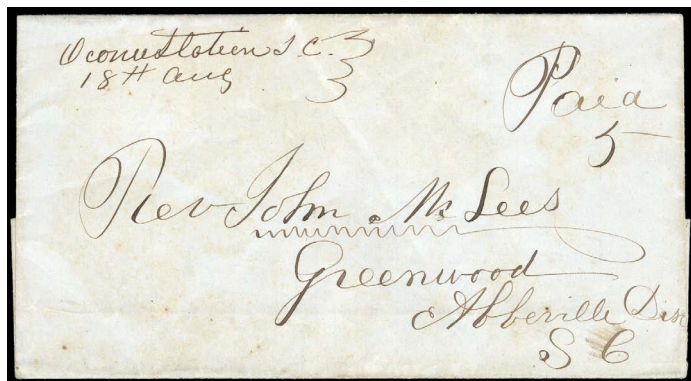 Oconee Station S. C.
18th Aug
Paid
5
Rev John McLees
Greenwood
Abbeville Dist
S C